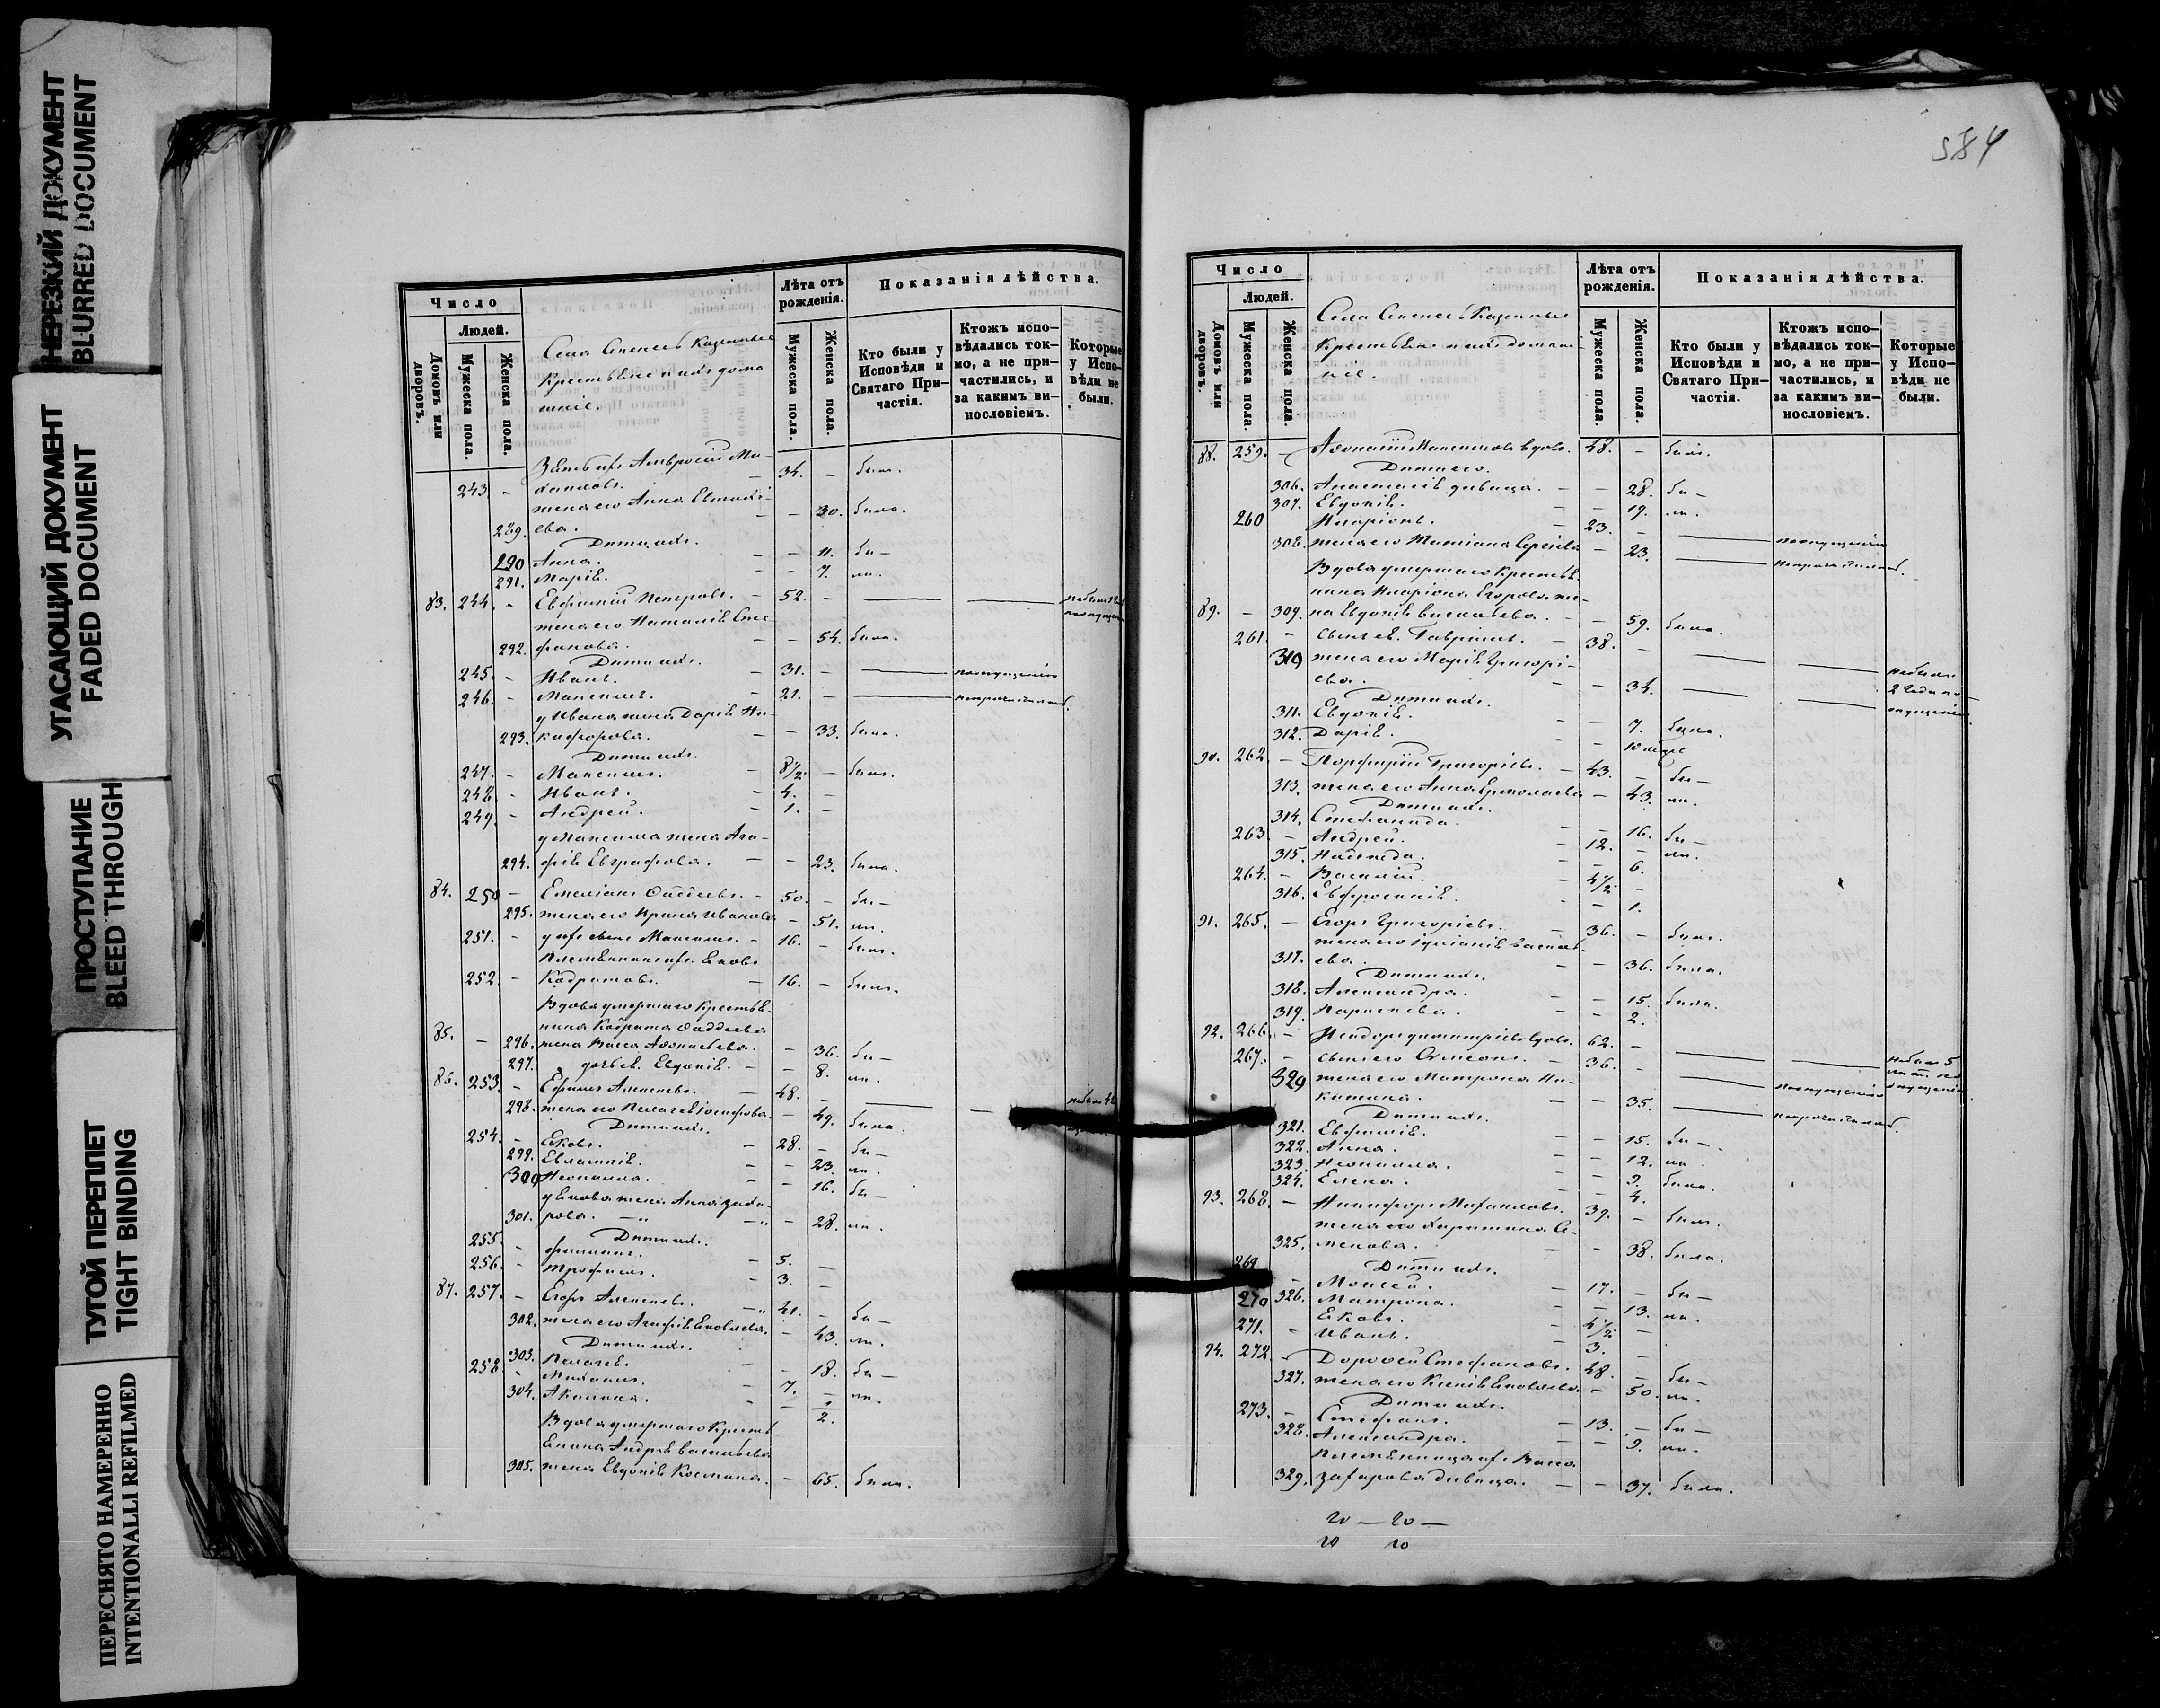 НЕРЕЗКИЙ ДОКУМЕНТ
BLURRED DOCUMENT
УГАСАЮЩИЙ ДОКУМЕНТ
FADED DOCUMENT
ПРОСТУПАНИЕ
BLEED THROUGH
ТУГОЙ ПЕРЕПЛЕТ
TIGHT BINDING
ПЕРЕСНЯТО НАМЕРЕННО
INTENTIONALLI REFILMED
Число
Людей.
Домовъ или дворовъ.
Мужеска пола.
Женска пола.
Села Казенные
Крестьяне и ихъ дома
шніе.
Лѣта отъ рожденія.
Мужеска пола.
Женска пола.
Показанія дѣйства.
Кто были у Исповѣди и Святаго При-частія.
Ктожъ испо-вѣдались ток-мо, а не при-частились, и за какимъ ви-нословіемъ.
Которые у Испо-вѣди не были.
Зять ихъ Амвросій Ми-
243. - хаиловъ. - 34. - былъ.
жена его Анна
289. ева. - - 30. была.
Дѣти ихъ.
290 Анна. - - 11. бы-
291. Марія. - - 7. ли.
83. 244. - Евфимій Петровъ. - 52. -
жена его Наталія Сте-
292. фанова. - - 54. была.
Дѣти ихъ.
245. - Иванъ. - 31. - по опущенію
246. - Максимъ. - 21. -
у Ивана жена Дарія Ни-
293. кифорова. - - 33. была.
Дѣти ихъ.
247. - Максимъ. - 8½. - былъ.
248. - Иванъ. - 4. -
249. - Андрей. - 1. -
у Максима жена Ага-
294. фія Евграфова. - - 23. была.
84. 250 - Емеліанъ Фаддеевъ. - 50. - бы-
295. жена его Ирина Иванова - 51. ли.
251. - у ихъ сынъ Максимъ. - 16. - былъ.
Племянникъ ихъ Яковъ
252. - Кодратовъ. - 16. - былъ.
Вдова умершаго крестья-
нина Кодрата Фаддеева
85. - 296. жена Васса Афонасьева. - 36. бы-
297. дочь ея Евдокія. - - 8. ли.
86. 253. - Ефимъ Алексеевъ. - 48. -
298. жена его Пелагея Іосифова. - 49. была.
Дѣти ихъ.
254. - Яковъ. - 28. - бы-
299. Евлампія. - - 23. ли.
300 Неонилла. - - 16. бы-
у Якова жена Анна Заха-
301. рова. - - 28. ли.
Дѣти ихъ.
255. - Филиппъ. - 5. -
256. - Трофимъ. - 3. -
87. 257. - Егоръ Алексеевъ. - 41. - бы-
302. жена его Агафія Яковлева. - 43. ли.
Дѣти ихъ.
303. Пелагея. - - 18. бы-
258. - Михаилъ. - 7. - ли.
304. Акилина. - - ½.
Вдова умершаго Кресть
янина Андрея Васильева
305. жена Евдокія Космина. - 65. была.
584
Число
Людей.
Домовъ или дворовъ.
Мужеска пола.
Женска пола.
Села Казенные
Крестьяне и ихъ домаш-
ніе.
Лѣта отъ рожденія.
Мужеска пола.
Женска пола.
Показанія дѣйства.
Кто были у Исповѣди и Святаго При-частія.
Ктожъ испо-вѣдались ток-мо, а не при-частились, и за какимъ ви-нословіемъ.
Которые у Испо-вѣди не были.
88. 259. - Афонасій Максимовъ вдовъ. 48. - былъ.
Дѣти его.
306. Анастасія девица. - - 28. бы-
307. Евдокія. - - 19. ли.
260 Иларіонъ. - 23. - по опущенію
308. жена его Татіана Сергіева - 23.
Вдова умершаго крестья-
нина Иларіона Егорова же-
89. - 309. на Евдокія Васильева. - - 59. была.
261 - сынъ ея Гавріилъ. - 38. -
310 жена его Марія Григорі-
ева. - - 34.
небыли 2 года по опущенію
Дѣти ихъ.
311. Евдокія. - - 7. была.
312. Дарія. - - 10 мѣс
90. 262. - Порфирій Григоріевъ. - 43. - бы-
313. жена его Анна Ермолаева - 43. ли.
Дѣти ихъ.
314. Степанида. - - 16. бы-
263 - Андрей. - 12. - ли.
315. Надежда. - - 6.
264. - Василій. - 4½. -
316. Евфросинія. - - 1.
91. 265. - Егоръ Григоріевъ. - 36. - былъ.
жена его Іуліанія
317. ева. - - 36. была.
Дѣти ихъ.
318. Александра. - - 15. была.
319. Параскева. - - 2.
92. 266. - Исидоръ Димитріевъ вдовъ. 62. -
267. - сынъ его Симеонъ. - 36. - по опущенію
небылъ 5 лѣтъ по опущенію
320 жена его Матрона Ни-
китина. - - 35.
Дѣти ихъ.
321. Евфимія. - - 15. бы-
322. Анна. - - 12. ли.
323. Неонилла. - - 9. была.
324. Елена. - - 4.
93. 268. - Никифоръ Михаиловъ. 39. - былъ.
жена его Харитина Се-
325. менова. - - 38. была.
Дѣти ихъ.
269 - Моисей. - 17. - бы-
326. Матрона. - - 13. ли.
270 Яковъ. - 4½ -
271. - Иванъ. - 3. -
94. 272 - Дорофей Стефановъ. 48. - бы-
327. жена его Ксенія Яковлева - 50. ли.
Дѣти ихъ.
273. - Стефанъ. - 13. - бы-
328. Александра. - - 9. ли.
Племянница ихъ Васса
329. Захарова девица. - - 37. была.
20 - 20 -
20 20